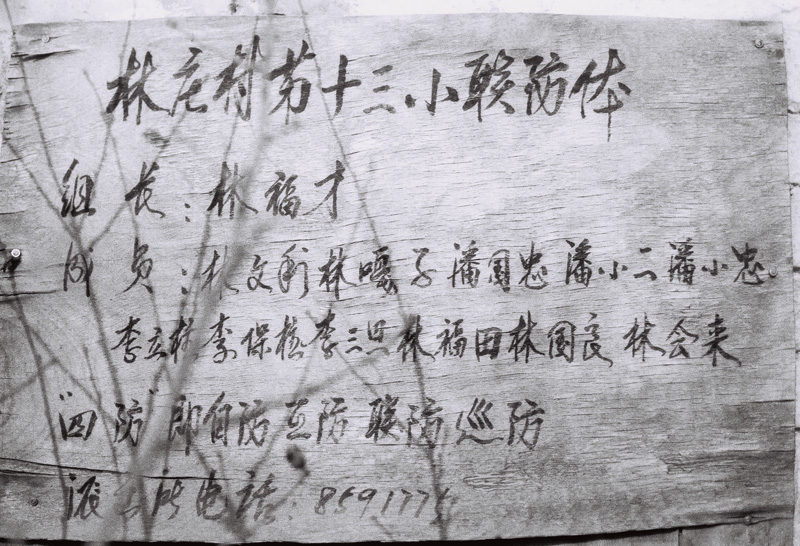 林庄村第十三小联防体
组长:林福才
成员:林文利林嘎子潘国忠潘小二潘小忠
李立林李保楼李三思林福田林国良林会来
"四防"即自防互防联防巡防
派出所电话:8591775